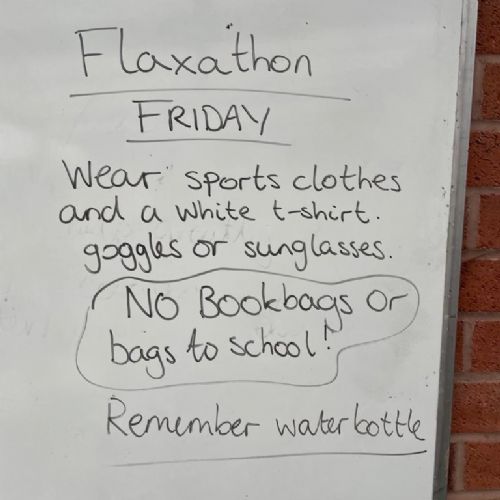 Flaxathon
FRIDAY
Wear sports clothes
and a white t-shirt.
goggles or sunglasses.
NO Bookbags or
bags to school!
Remember water bottle